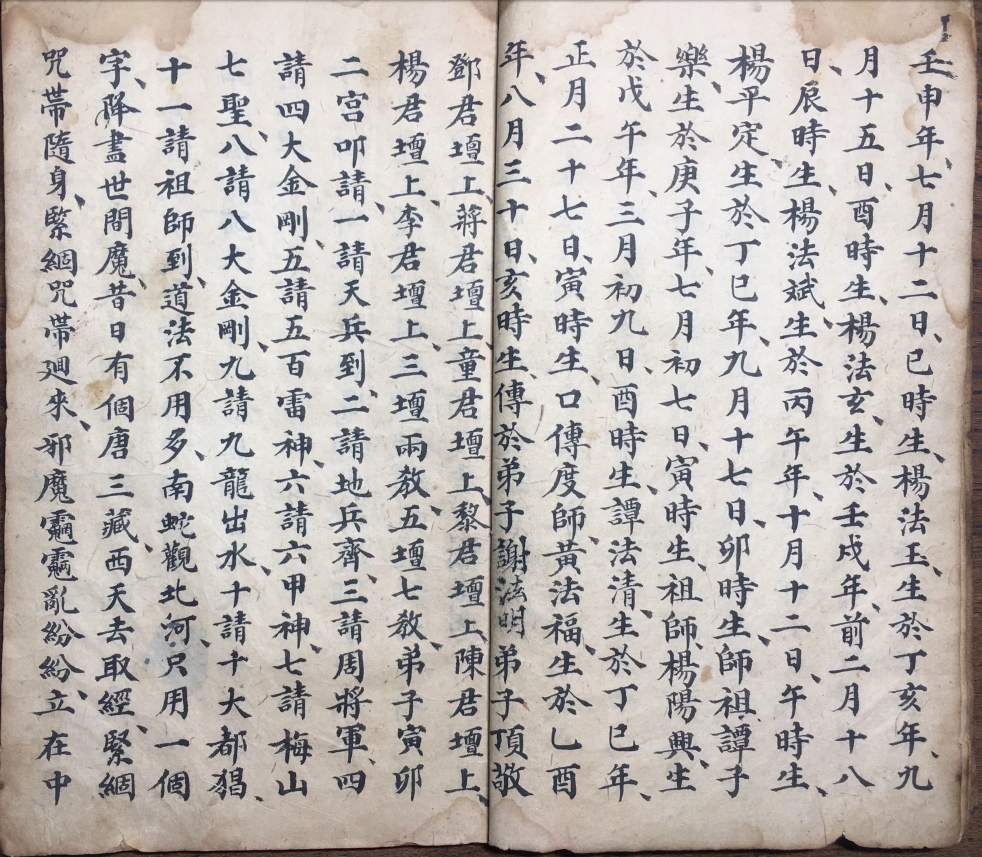 壬申年、七月十二日、巳時生、楊法玉生於丁亥年、九
月十五日、酉時生、楊法玄、生於壬戌年、前二月十八
日、辰時生、楊法斌、生於丙午年、十月十二日、午時生、
楊平定、生於丁巳年、九月十七日、卯時生、師祖譚子
樂、生於庚子年、七月初七日、寅時生、祖師楊陽興、生
於戊午年、三月初九日、酉時生、譚法清、生於丁巳年、
正月二十七日、寅時生、口傳度師、黃法福、生於乙酉
年、八月三十日、亥時生、傳於弟子謝法明弟子頂敬
鄧君壇上、蔣君壇上、童君壇上、黎君壇上、陳君壇上、
楊君壇上、李君壇上、三壇兩教、五壇七教、弟子寅卯
二宮叩請、一請天兵到、二請地兵齊、三請周將軍、四
請四大金剛、五請五百雷神、六請六甲神、七請梅山
七聖、八請八大金剛、九請九龍出水、十請十大都猖、
十一請祖師到、道法不用多、南蛇觀北河、只用一個
字、降盡世間魔、昔日有個唐三藏、西天去取經、緊綑
咒帶隨身、緊綑咒帶迴來、邪魔亂紛紛、立在中